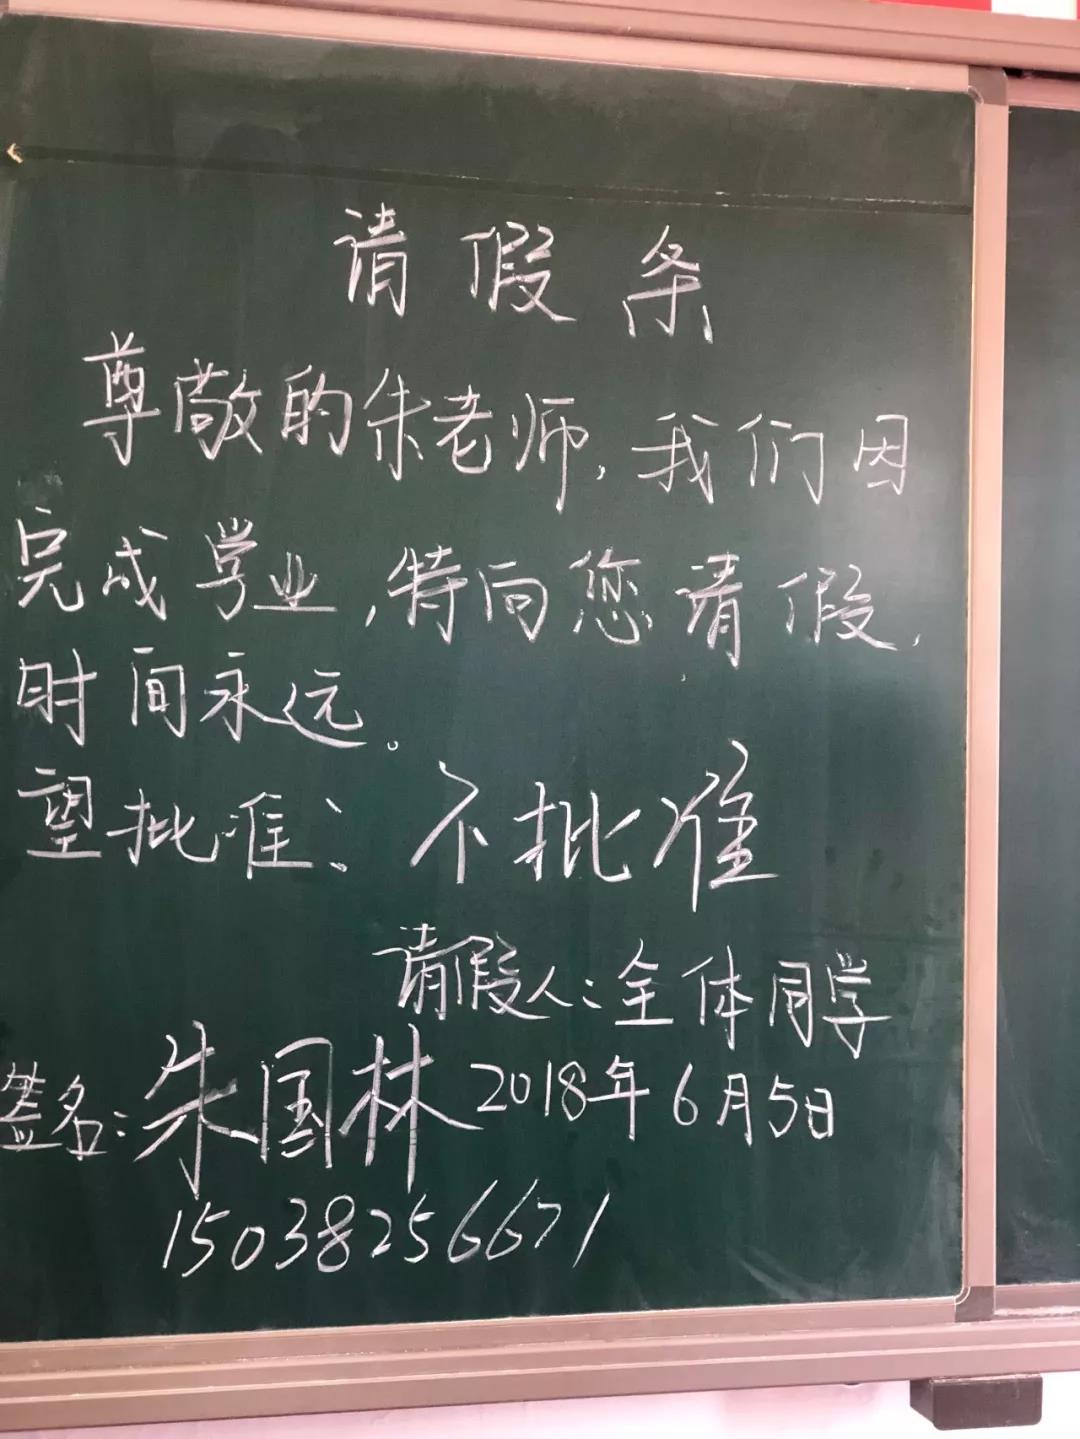 请假条
尊敬的朱老师，我们因
完成学业，特向您请假，
时间永远。
望批准： 不批准
请假人：全体同学
签名：朱国林 2018年6月5日
15038256671